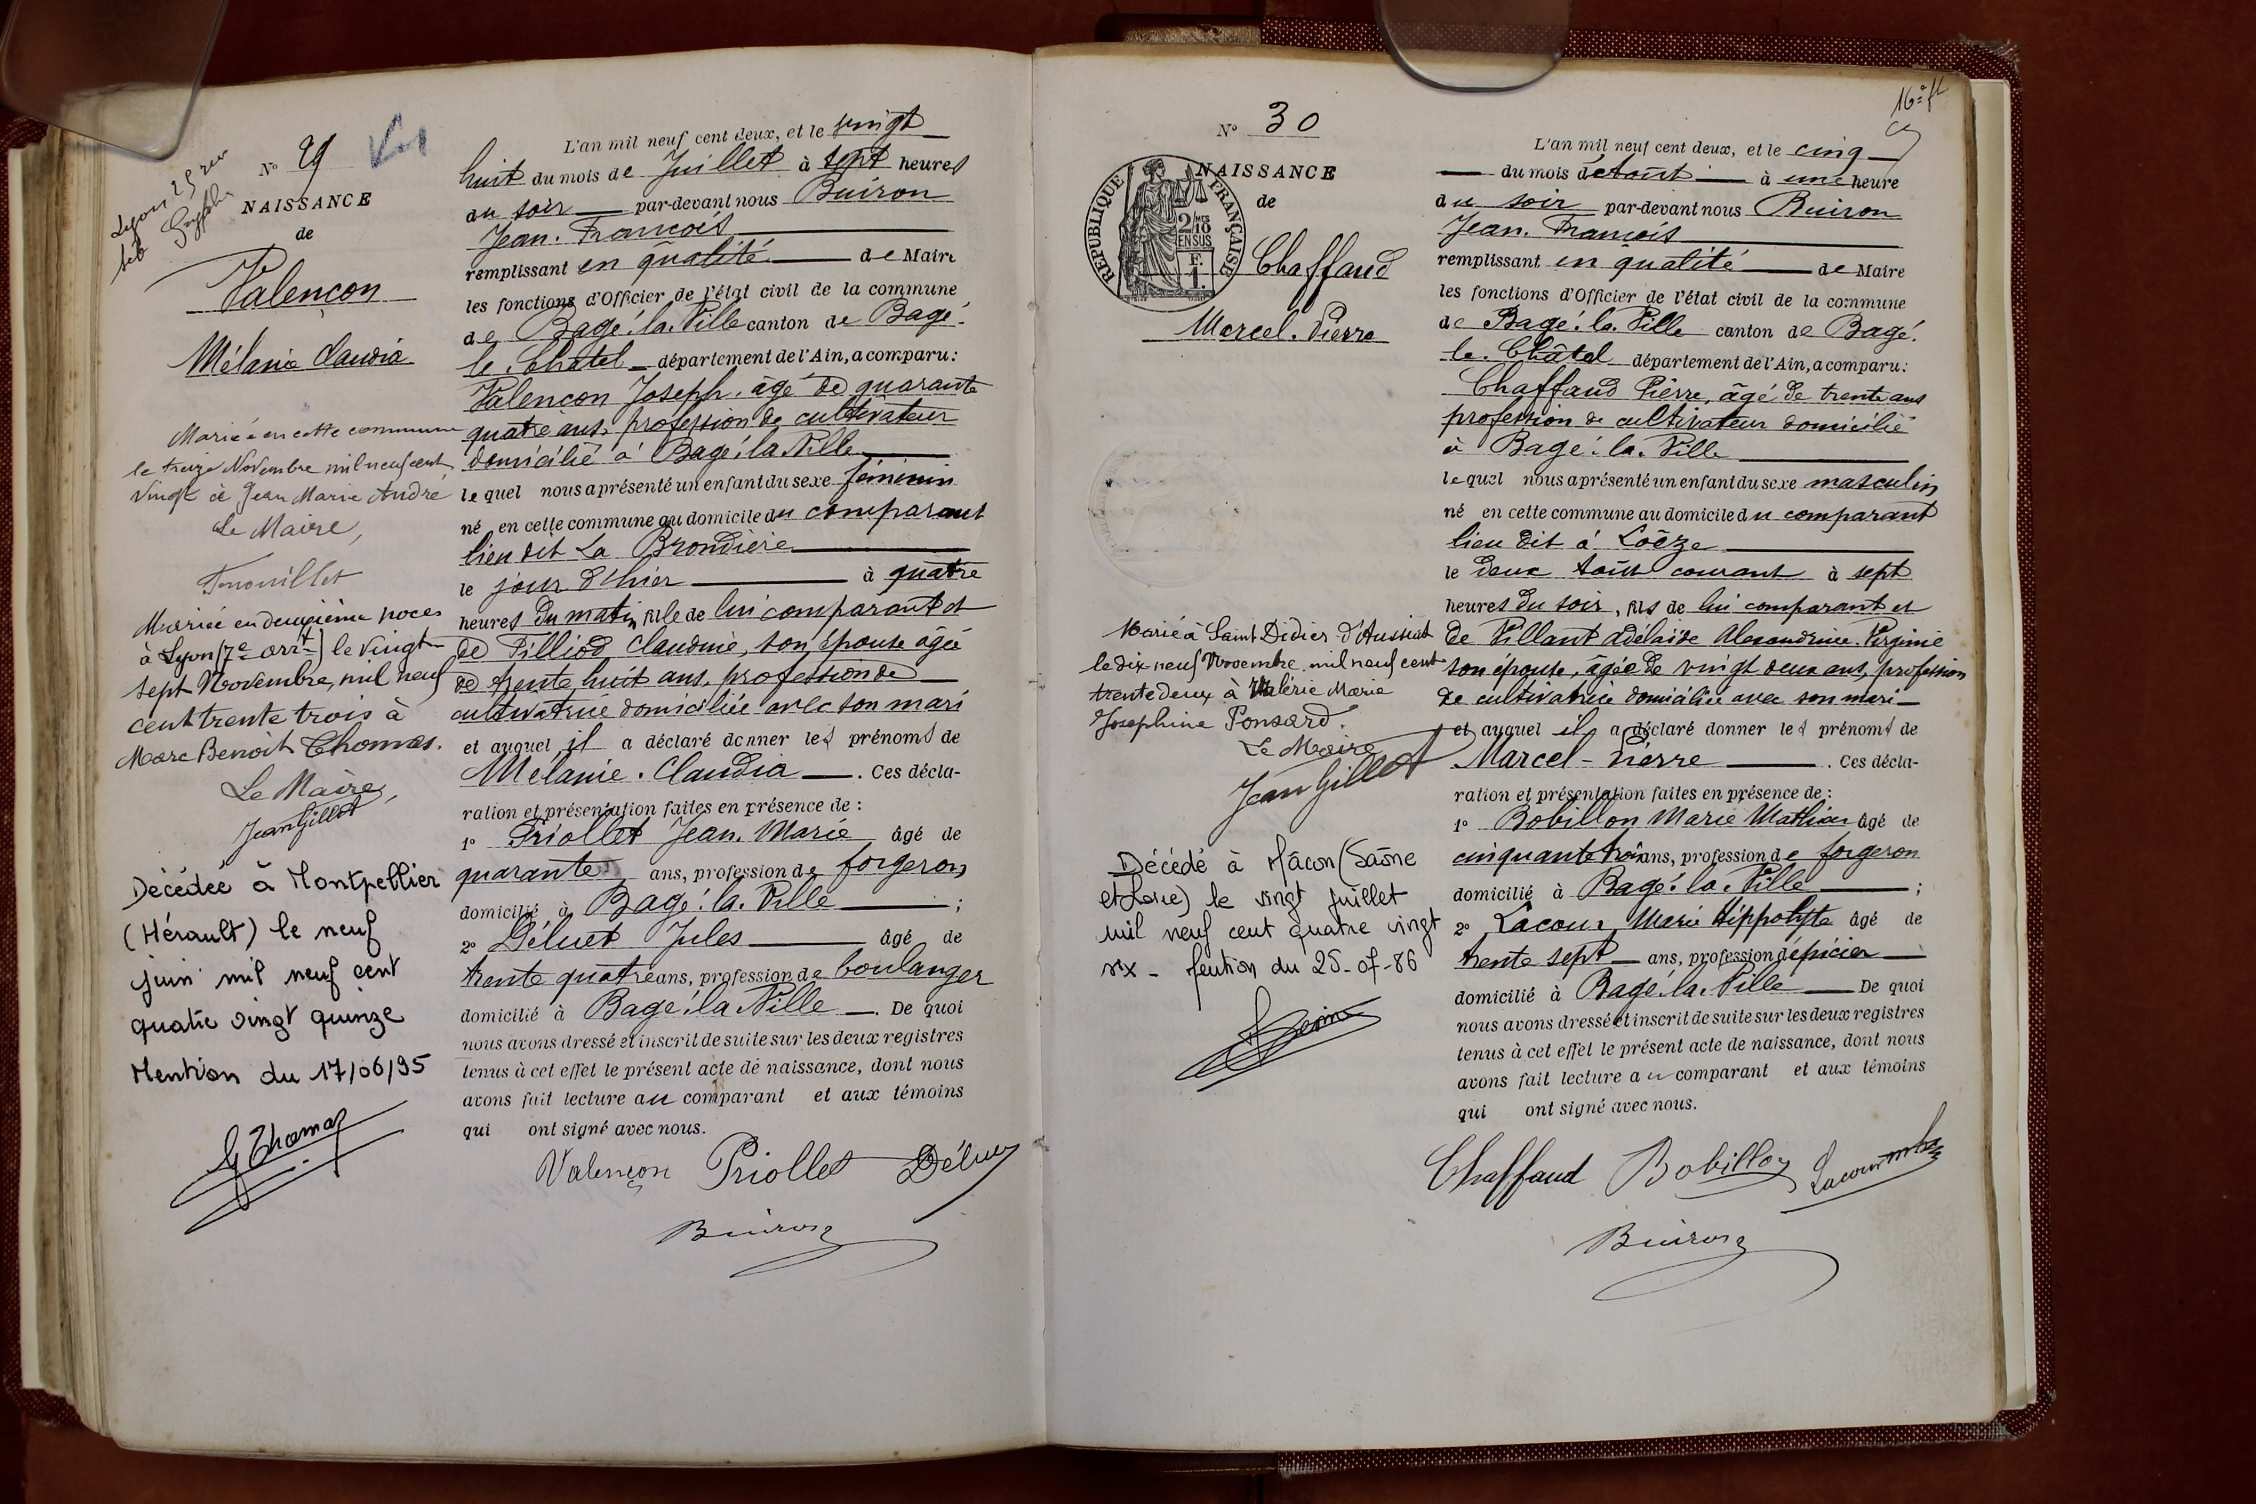 N° 29
NAISSANCE
de
Valençon
Mélanie Claudia
Mariée en cette commune
le treize Novembre mil neuf cent
vingt à Jean Marie André
Le Maire,
Mariée en deuxième noces
à Lyon (7e arrt) le vingt
sept Novembre, mil neuf
cent trente trois à
Marc Benoit Thomas.
Le Maire,
Jean Gillet
Décédée à Montpellier
(Hérault) le neuf
juin mil neuf cent
quatre vingt quinze
Mention du 17/06/95
G Thomas
L'an mil neuf cent deux, et le vingt
huit du mois de Juillet à sept heures
du soir par-devant nous Buiron
Jean. François
remplissant en qualité de Maire
les fonctions d'Officier de l'état civil de la commune
de Bagé. la. Ville canton de Bagé.
le Châtel département de l'Ain, a comparu:
Valençon Joseph, âgé de quarante
quatre ans, profession de cultivateur
domicilié à Bagé. la Ville
lequel nous a présenté un enfant du sexe féminin
né en cette commune au domicile du comparant
lieu dit La Brondière
le jour d'hier à quatre
heures du matin, fille de lui comparant et
de Pilliod Claudine, son épouse âgée
de trente huit ans, profession de
cultivatrice domiciliée avec son mari
et auquel il a déclaré donner les prénoms de
Mélanie. Claudia. Ces décla-
ration et présentation faites en présence de :
1° Priollet Jean. Marie âgé de
quarante ans, profession de forgeron
domicilié à Bagé. la. Ville ;
2° Déluet Jules âgé de
trente quatre ans, profession de boulanger
domicilié à Bagé. la Ville. De quoi
nous avons dressé et inscrit de suite sur les deux registres
tenus à cet effet le présent acte de naissance, dont nous
avons fait lecture au comparant et aux témoins
qui ont signé avec nous.
Valençon Priollet Déluet
Buiron
N° 30
NAISSANCE
de
RÉPUBLIQUE FRANÇAISE
2/10 MES
EN SUS
F.
1.
Chaffaud
Marcel. Pierre
Marié à Saint Didier d'Aussiat
le dix neuf Novembre mil neuf cent
trente deux à Valérie Marie
Josephine Ponsard.
Le Maire
Jean Gillet
Décédé à Mâcon (Saône
et Loire) le vingt juillet
mil neuf cent quatre vingt
six - Mention du 25-07-86
L'an mil neuf cent deux, et le cinq
du mois d'Août à une heure
du soir par-devant nous Buiron
Jean. François
remplissant en qualité de Maire
les fonctions d'Officier de l'état civil de la commune
de Bagé. la. Ville canton de Bagé.
le. Châtel département de l'Ain, a comparu:
Chaffaud Pierre, âgé de trente ans
profession de cultivateur domicilié
à Bagé. la. Ville
lequel nous a présenté un enfant du sexe masculin
né en cette commune au domicile du comparant
lieu dit à Loëze
le deux Août courant à sept
heures du soir, fils de lui comparant et
de Villant Adélaïde Alexandrine. Virginie
son épouse, âgée de vingt deux ans, profession
de cultivatrice domiciliée avec son mari
et auquel il a déclaré donner les prénoms de
Marcel - Pierre. Ces décla-
ration et présentation faites en présence de :
1° Bobillon Marie Mathieu âgé de
cinquante trois ans, profession de forgeron
domicilié à Bagé. la. Ville ;
2° Lacour Marie Hippolyte âgé de
trente sept ans, profession d'épicier
domicilié à Bagé. la. Ville De quoi
nous avons dressé et inscrit de suite sur les deux registres
tenus à cet effet le présent acte de naissance, dont nous
avons fait lecture au comparant et aux témoins
qui ont signé avec nous.
Chaffaud Bobillon Lacour
Buiron